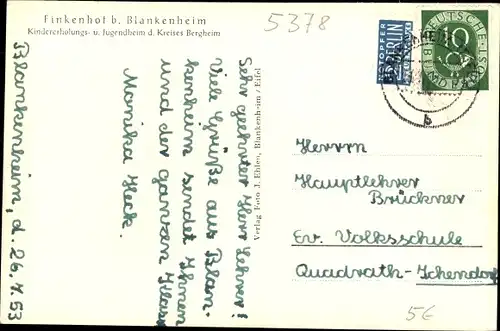 Finkenhof b. Blankenheim
Kindererholungs- u. Jugendheim d. Kreises Bergheim
5378
Blankenheim, d. 26.7.53
Sehr geehrter Herr Lehrer!
Viele Grüße aus Blan-
kenheim sendet Ihnen
und der ganzen Klasse
Monika Heck.
Verlag Foto J. Ehlen, Blankenheim / Eifel
NOTOPFER
2 BERLIN
STEUERMARKE
DEUTSCHE
BUNDESPOST
10
b
Herrn
Hauptlehrer
Brückner
Ev. Volksschule
Quadrath-Ichendorf
5€